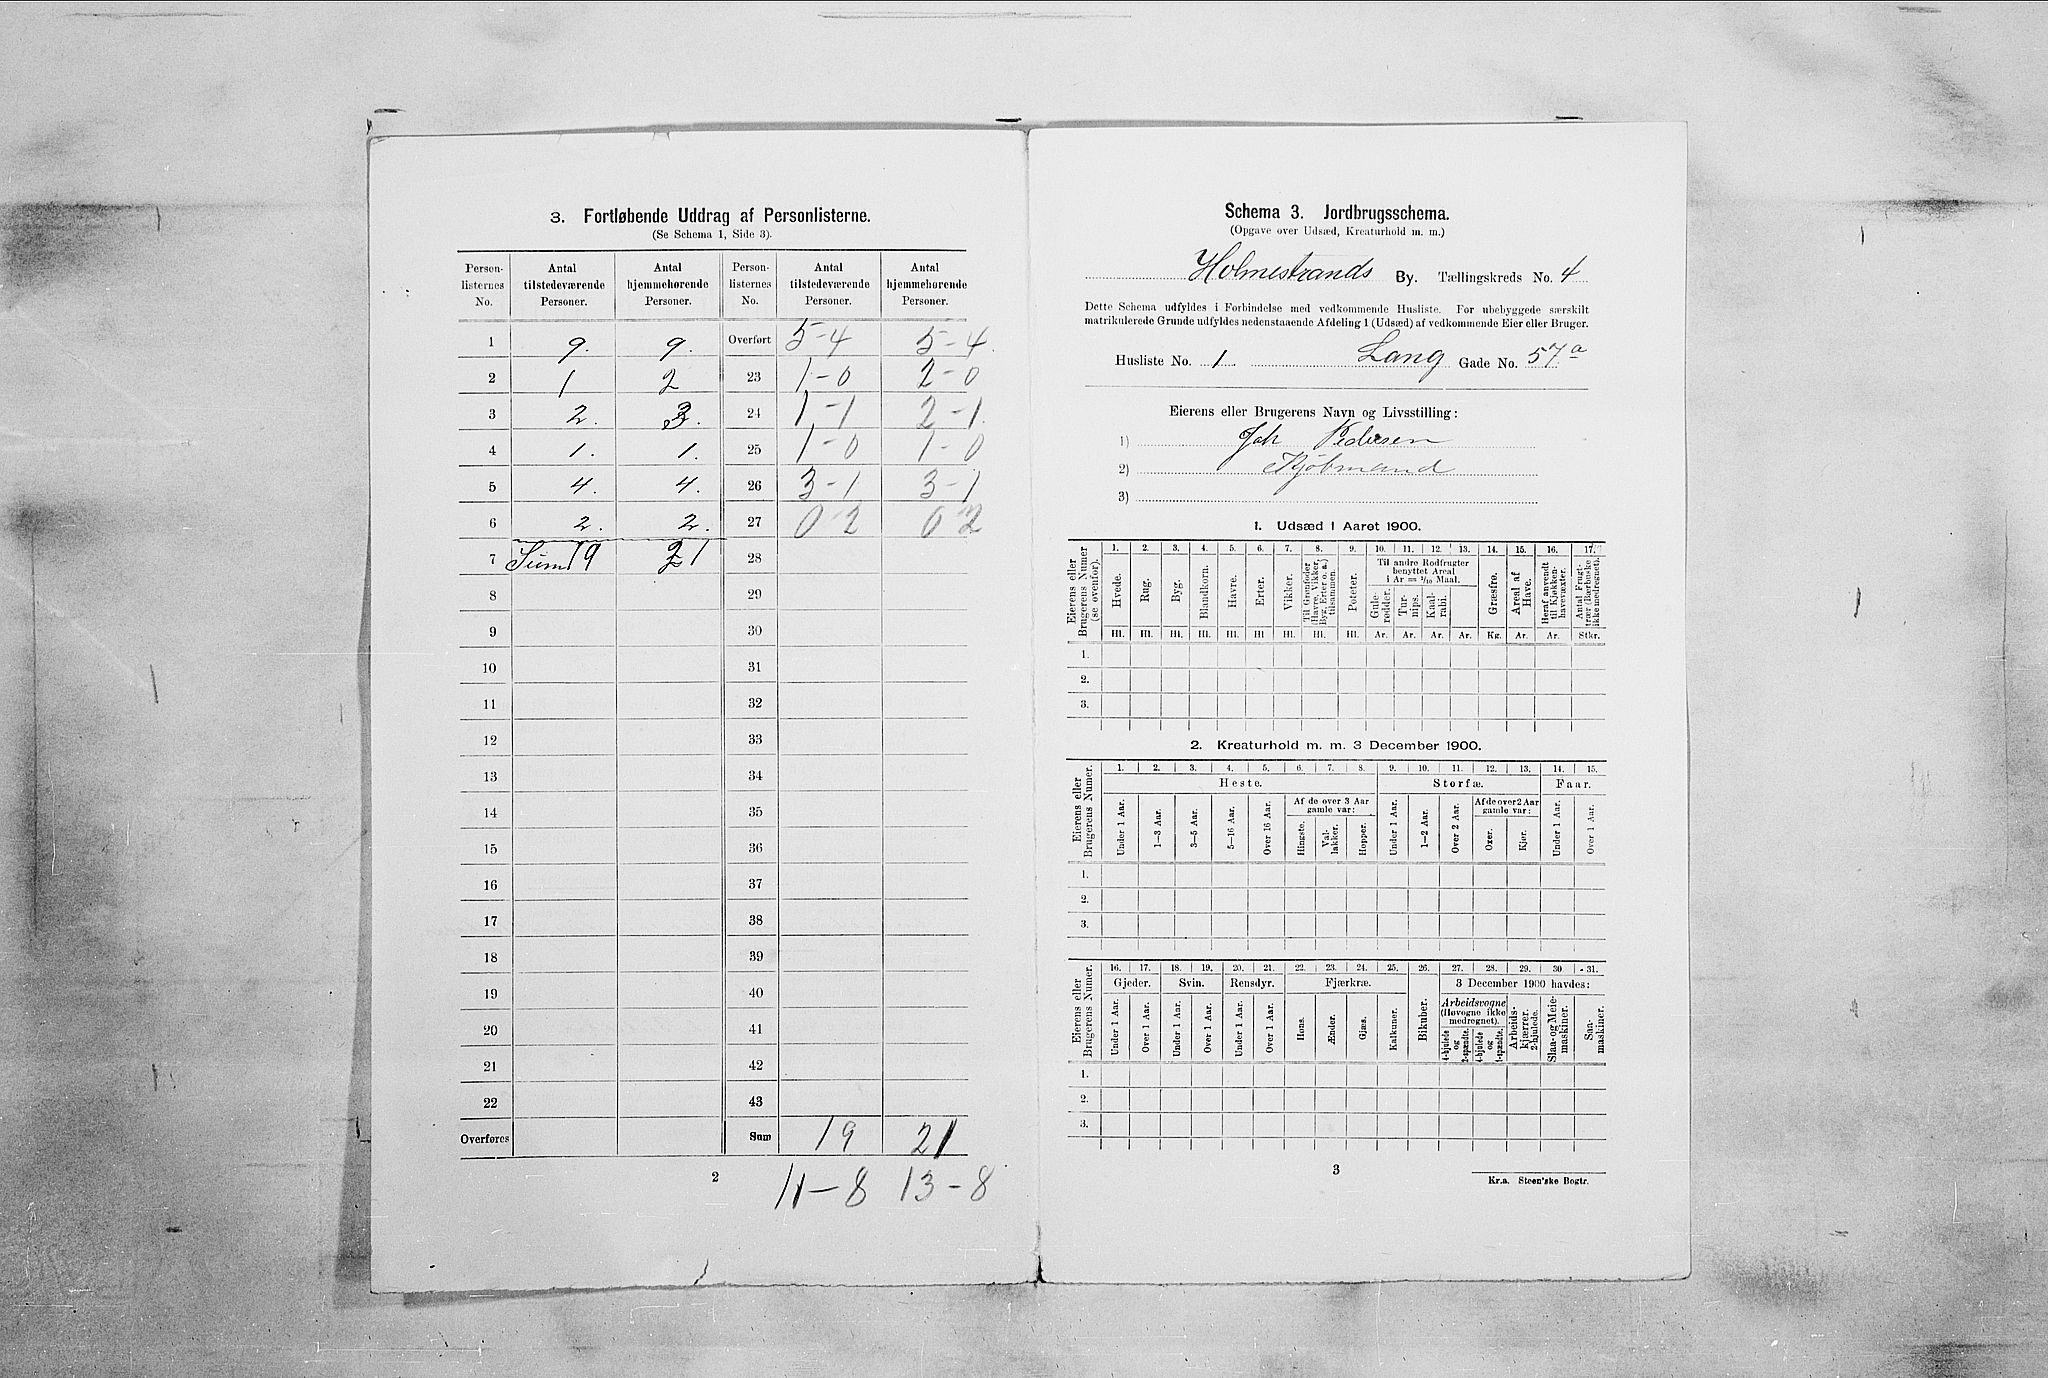 3. Fortløbende Uddrag af Personlisterne.
(Se Schema 1, Side 3).
Person-listernes No. | Antal tilstedeværende Personer. | Antal hjemmehørende Personer. | Person-listernes No. | Antal tilstedeværende Personer. | Antal hjemmehørende Personer.
1 | 9. | 9. | Overført | 5-4 | 5-4.
2 | 1 | 2 | 23 | 1-0 | 2-0
3 | 2. | 3. | 24 | 1-1 | 2-1.
4 | 1. | 1. | 25 | 1-0 | 1-0
5 | 4. | 4. | 26 | 3-1 | 3-1
6 | 2. | 2. | 27 | 0-2 | 0-2
7 | Sum 19 | 21 | 28
8 | 29
9 | 30
10 | 31
11 | 32
12 | 33
13 | 34
14 | 35
15 | 36
16 | 37
17 | 38
18 | 39
19 | 40
20 | 41
21 | 42
22 | 43
Overføres | Sum | 19 | 21
2
11-8 13-8
Schema 3. Jordbrugsschema.
(Opgave over Udsæd, Kreaturhold m. m.)
Holmestrands By. Tællingskreds No. 4
Dette Schema udfyldes i Forbindelse med vedkommende Husliste. For ubebyggede særskilt
matrikulerede Grunde udfyldes nedenstaaende Afdeling 1 (Udsæd) af vedkommende Eier eller Bruger.
Husliste No. 1. Lang Gade No. 57 a
Eierens eller Brugerens Navn og Livsstilling:
1) Joh Pedersen
2) Kjøbmand
3)
1. Udsæd i Aaret 1900.
Eierens eller Brugerens Numer (se ovenfor).
1. 2. 3. 4. 5. 6. 7. 8. 9. 10. 11. 12. 13. 14. 15. 16. 17.
Til andre Rodfrugter benyttet Areal i Ar = 1/10 Maal.
Hvede. Rug. Byg. Blandkorn. Havre. Erter. Vikker. Til Grønfoder (Havre, Vikker, Byg, Erter o. a.) tilsammen. Poteter. Gule-rødder. Tur-nips. Kaal-rabi. Græsfrø. Areal af Have. Heraf anvendt til Kjøkken-havevæxter. Antal Frugt-trær (Bærbuske ikke medregnet).
Hl. Hl. Hl. Hl. Hl. Hl. Hl. Hl. Hl. Ar. Ar. Ar. Ar. Kg. Ar. Ar. Stkr.
1.
2.
3.
2. Kreaturhold m. m. 3 December 1900.
Eierens eller Brugerens Numer.
1. 2. 3. 4. 5. 6. 7. 8. 9. 10. 11. 12. 13. 14. 15.
Heste. Storfæ. Faar.
Af de over 3 Aar gamle var: Af de over 2 Aar gamle var:
Under 1 Aar. 1—3 Aar. 3—5 Aar. 5—16 Aar. Over 16 Aar. Hingste. Val-lakker. Hopper. Under 1 Aar. 1—2 Aar. Over 2 Aar. Oxer. Kjør. Under 1 Aar. Over 1 Aar.
1.
2.
3.
Eierens eller Brugerens Numer.
16. 17. 18. 19. 20. 21. 22. 23. 24. 25. 26. 27. 28. 29. 30 31.
Gjeder. Svin. Rensdyr. Fjærkræ. 3 December 1900 havdes:
Arbeidsvogne (Høvogne ikke medregnet).
Under 1 Aar. Over 1 Aar. Under 1 Aar. Over 1 Aar. Under 1 Aar. Over 1 Aar. Høns. Ænder. Gjæs. Kalkuner. Bikuber. 4-hjulede og 2-spændte. 4-hjulede og 1-spændte. Arbeids-kjærrer. 2-hjulede. Slaa- og Meie-maskiner. Saa-maskiner.
1.
2.
3.
3
Kr.a. Steen'ske Bogtr.